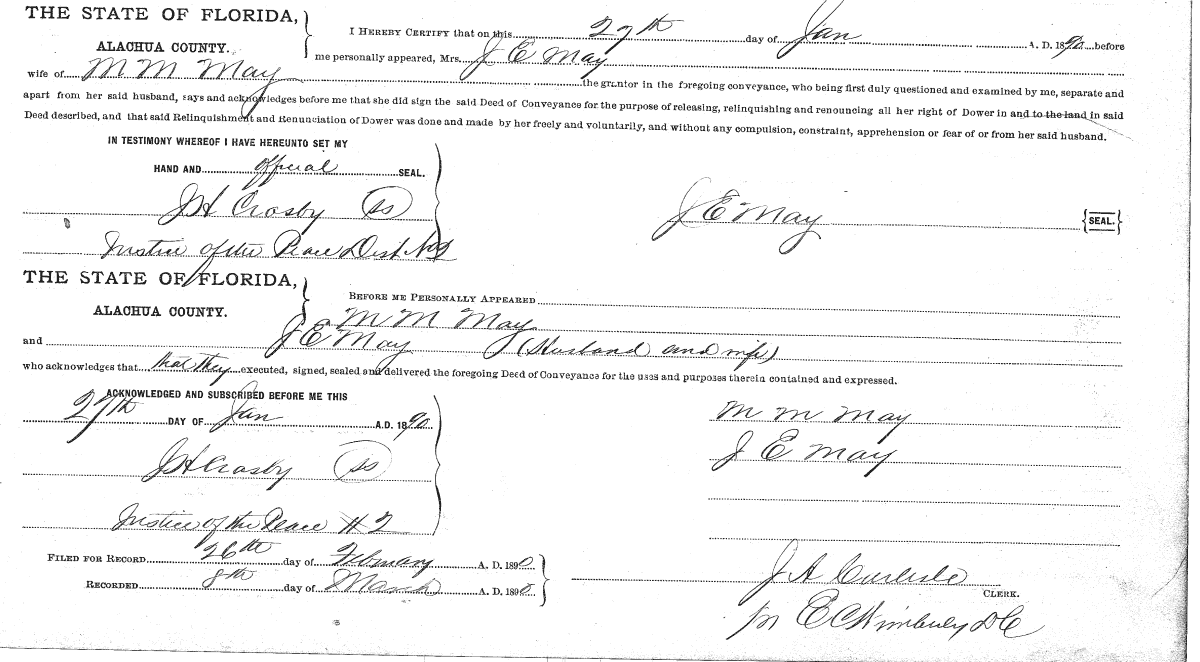 THE STATE OF FLORIDA,
ALACHUA COUNTY.
I HEREBY CERTIFY that on this 27th day of Jan A. D. 1890 before
me personally appeared, Mrs. J E May
wife of M M May the grantor in the foregoing conveyance, who being first duly questioned and examined by me, separate and
apart from her said husband, says and acknowledges before me that she did sign the said Deed of Conveyance for the purpose of releasing, relinquishing and renouncing all her right of Dower in and to the land in said
Deed described, and that said Relinquishment and Renunciation of Dower was done and made by her freely and voluntarily, and without any compulsion, constraint, apprehension or fear of or from her said husband.
IN TESTIMONY WHEREOF I HAVE HEREUNTO SET MY
HAND AND official SEAL.
J H Crosby (SS)
J E May {SEAL.}
Justice of the Peace Dist No 2
THE STATE OF FLORIDA,
ALACHUA COUNTY.
BEFORE ME PERSONALLY APPEARED
M M May
and J E May (Husband and wife)
who acknowledges that that they executed, signed, sealed and delivered the foregoing Deed of Conveyance for the uses and purposes therein contained and expressed.
ACKNOWLEDGED AND SUBSCRIBED BEFORE ME THIS
27th DAY OF Jan A.D. 1890
M M May
J E May
J H Crosby (SS)
Justice of the Peace # 2
FILED FOR RECORD 26th day of February A. D. 1890
RECORDED 8th day of March A. D. 1890
J A Carlisle
CLERK.
pr E C Kimberly DC